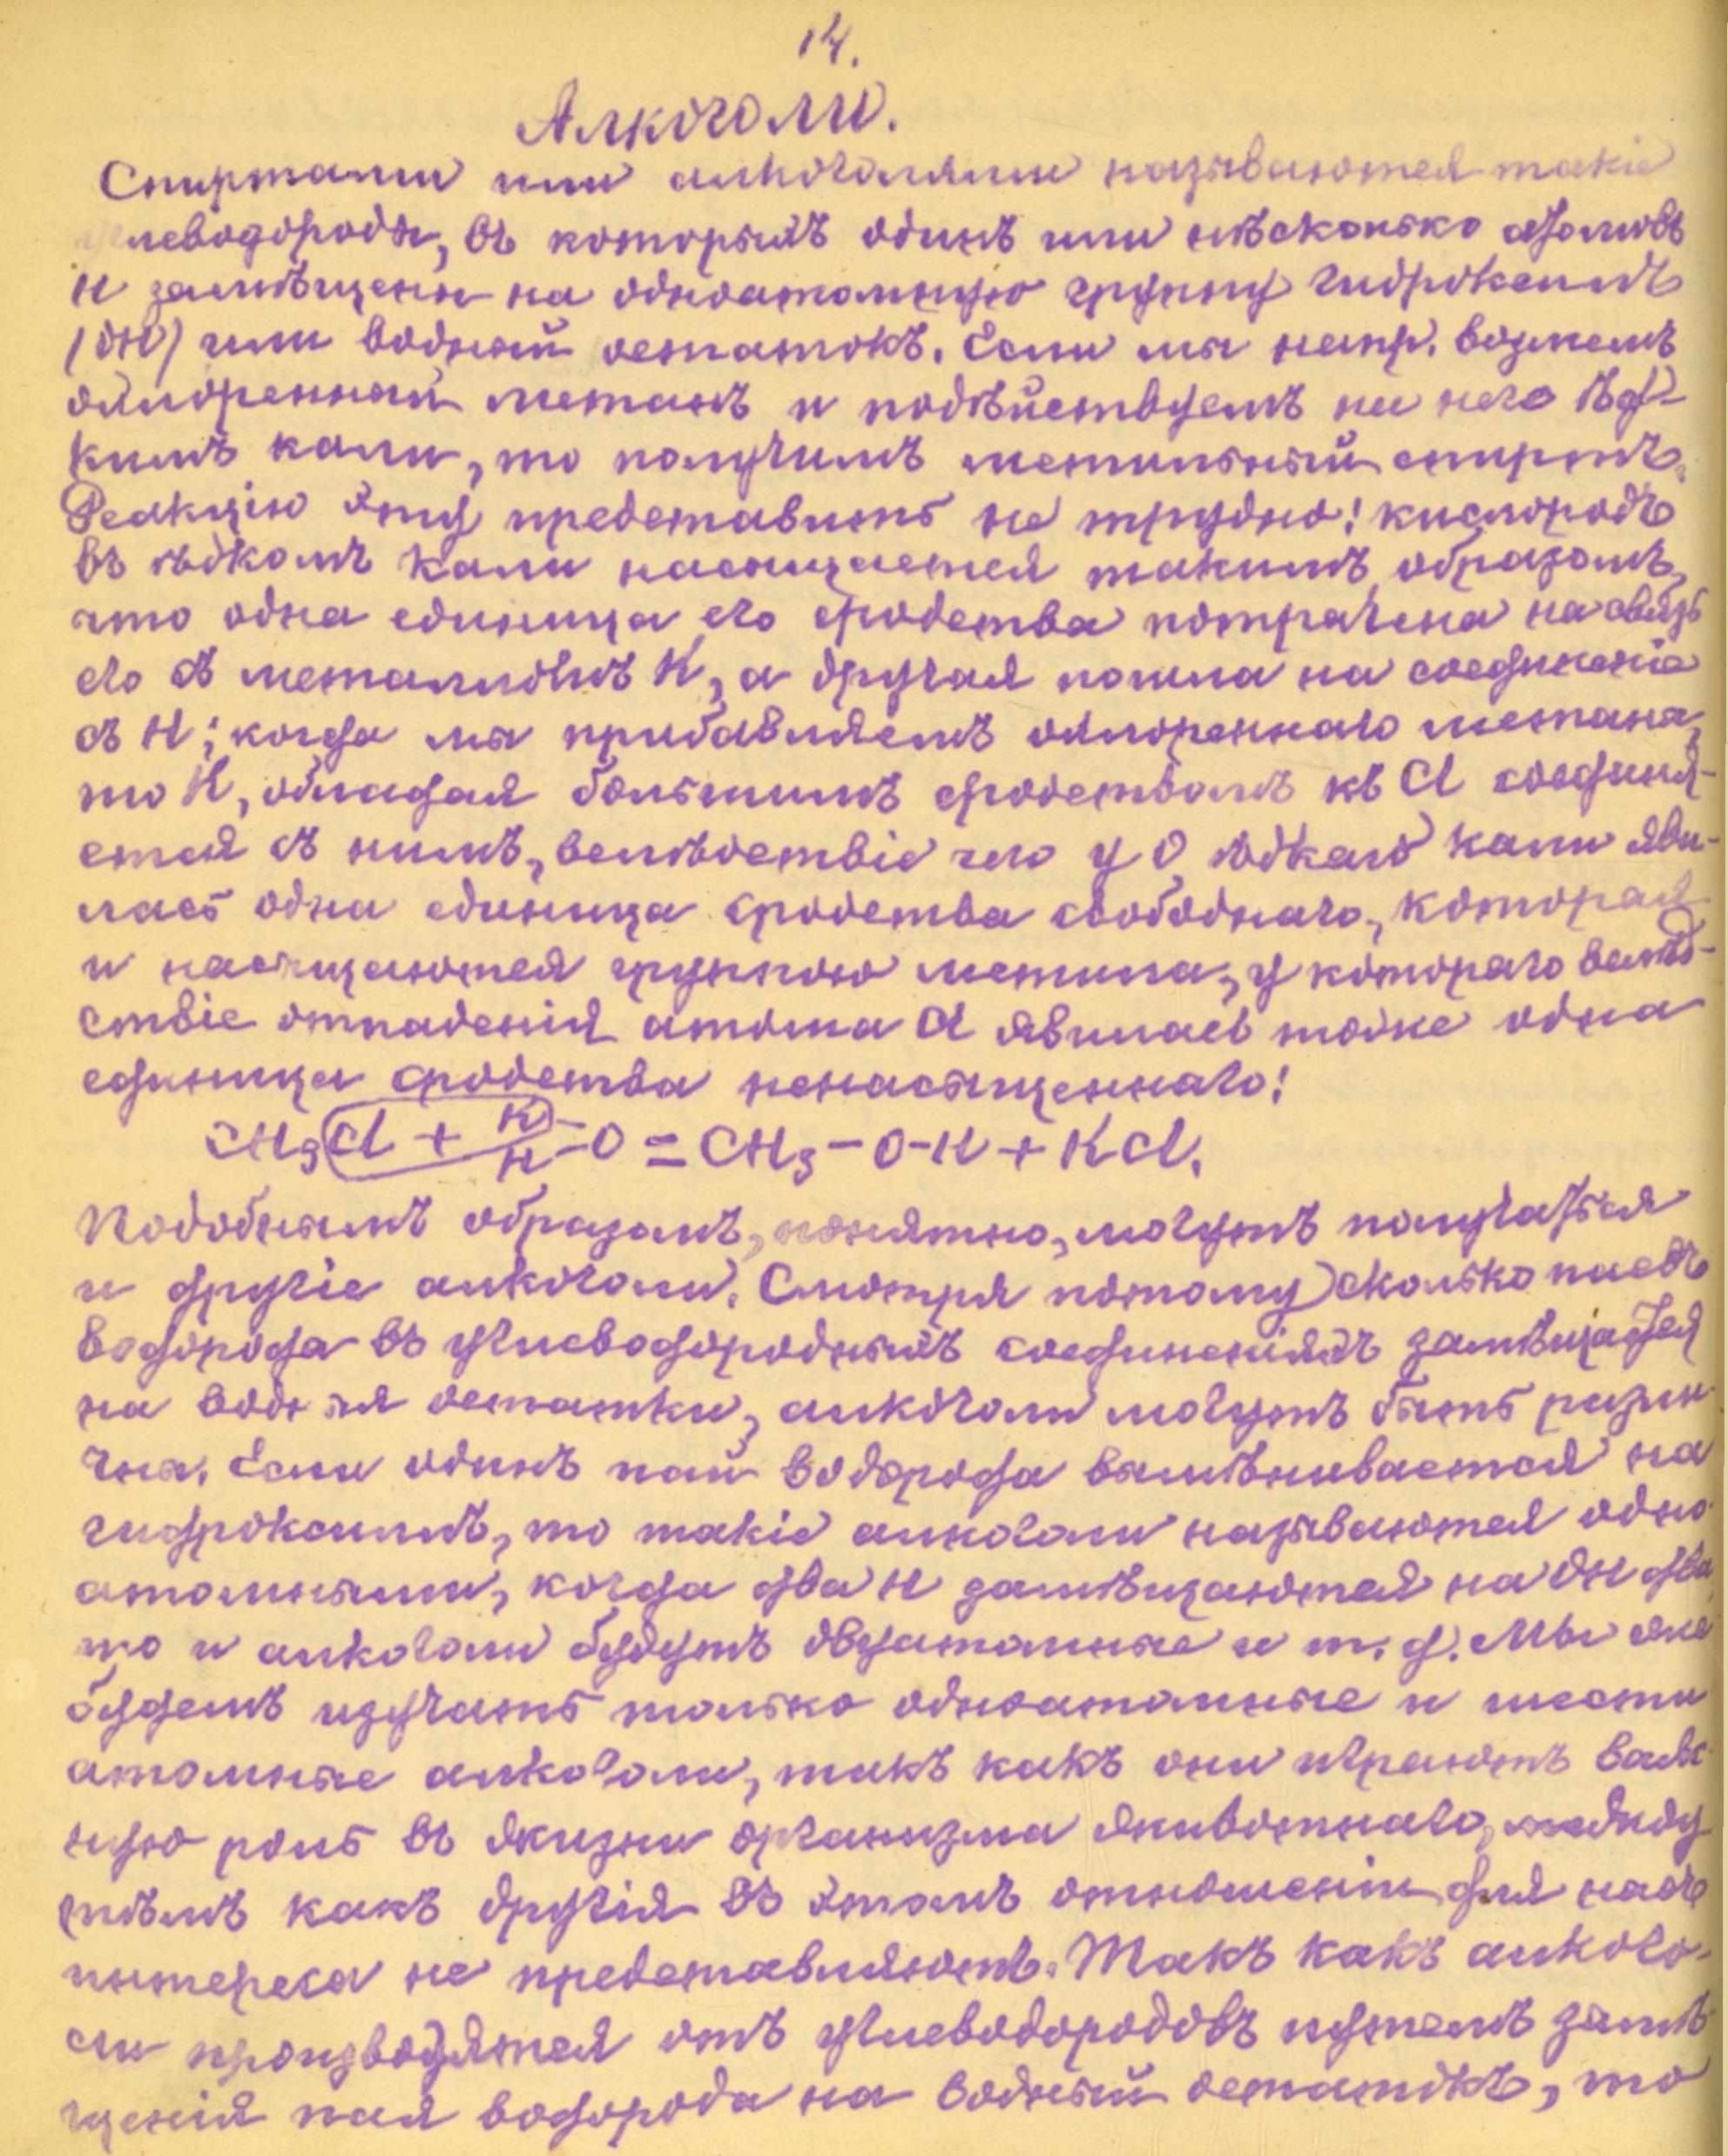 14.
Алкоголи.
Спиртами или алкоголями называются такіе
углеводороды, въ которыхъ одинъ или нѣсколько атомовъ
H замѣщены на одноатомную группу гидроксилъ
(OH) или водный остатокъ. Если мы напр. возьмемъ
охлоренный метанъ и подѣйствуемъ на него ѣд-
кимъ кали, то получимъ метильный спиртъ.
Реакцію эту представить не трудно: кислородъ
въ ѣдкомъ кали насыщается такимъ образомъ,
что одна единица его сродства потрачена на связь
его съ металломъ K, а другая пошла на соединеніе
съ H; когда мы прибавляемъ охлореннаго метана,
то K, обладая большимъ сродствомъ къ Cl соединя-
ется съ нимъ, вслѣдствіе чего у O ѣдкаго кали яви-
лась одна единица сродства свободнаго, которая
и насыщаются группою метила, у котораго вслѣд-
ствіе отпаденія атома Cl явилась тоже одна
единица сродства ненасыщеннаго:
CH₃Cl + K/H-O = CH₃-O-H + KCl.
Подобнымъ образомъ, понятно, могутъ получаться
и другіе алкоголи. Смотря потому сколько паевъ
водорода въ углеводородныхъ соединеніяхъ замѣщается
на водные остатки, алкоголи могутъ быть разли
чны. Если одинъ пай водорода вымѣнивается на
гидроксилъ, то такіе алкоголи называются одно
атомными, когда два H замѣщаются на OH два,
то и алкоголи будутъ двуатомные и т. д. Мы же
будемъ изучать только одноатомные и шести
атомные алкоголи, такъ какъ они играютъ важ
ную роль въ жизни организма животнаго, между
тѣмъ какъ другія въ этомъ отношеніи для насъ
интереса не представляютъ. Такъ какъ алкого-
ли производятся отъ углеводородовъ путемъ замѣ
щенія пая водорода на водный остатокъ, то